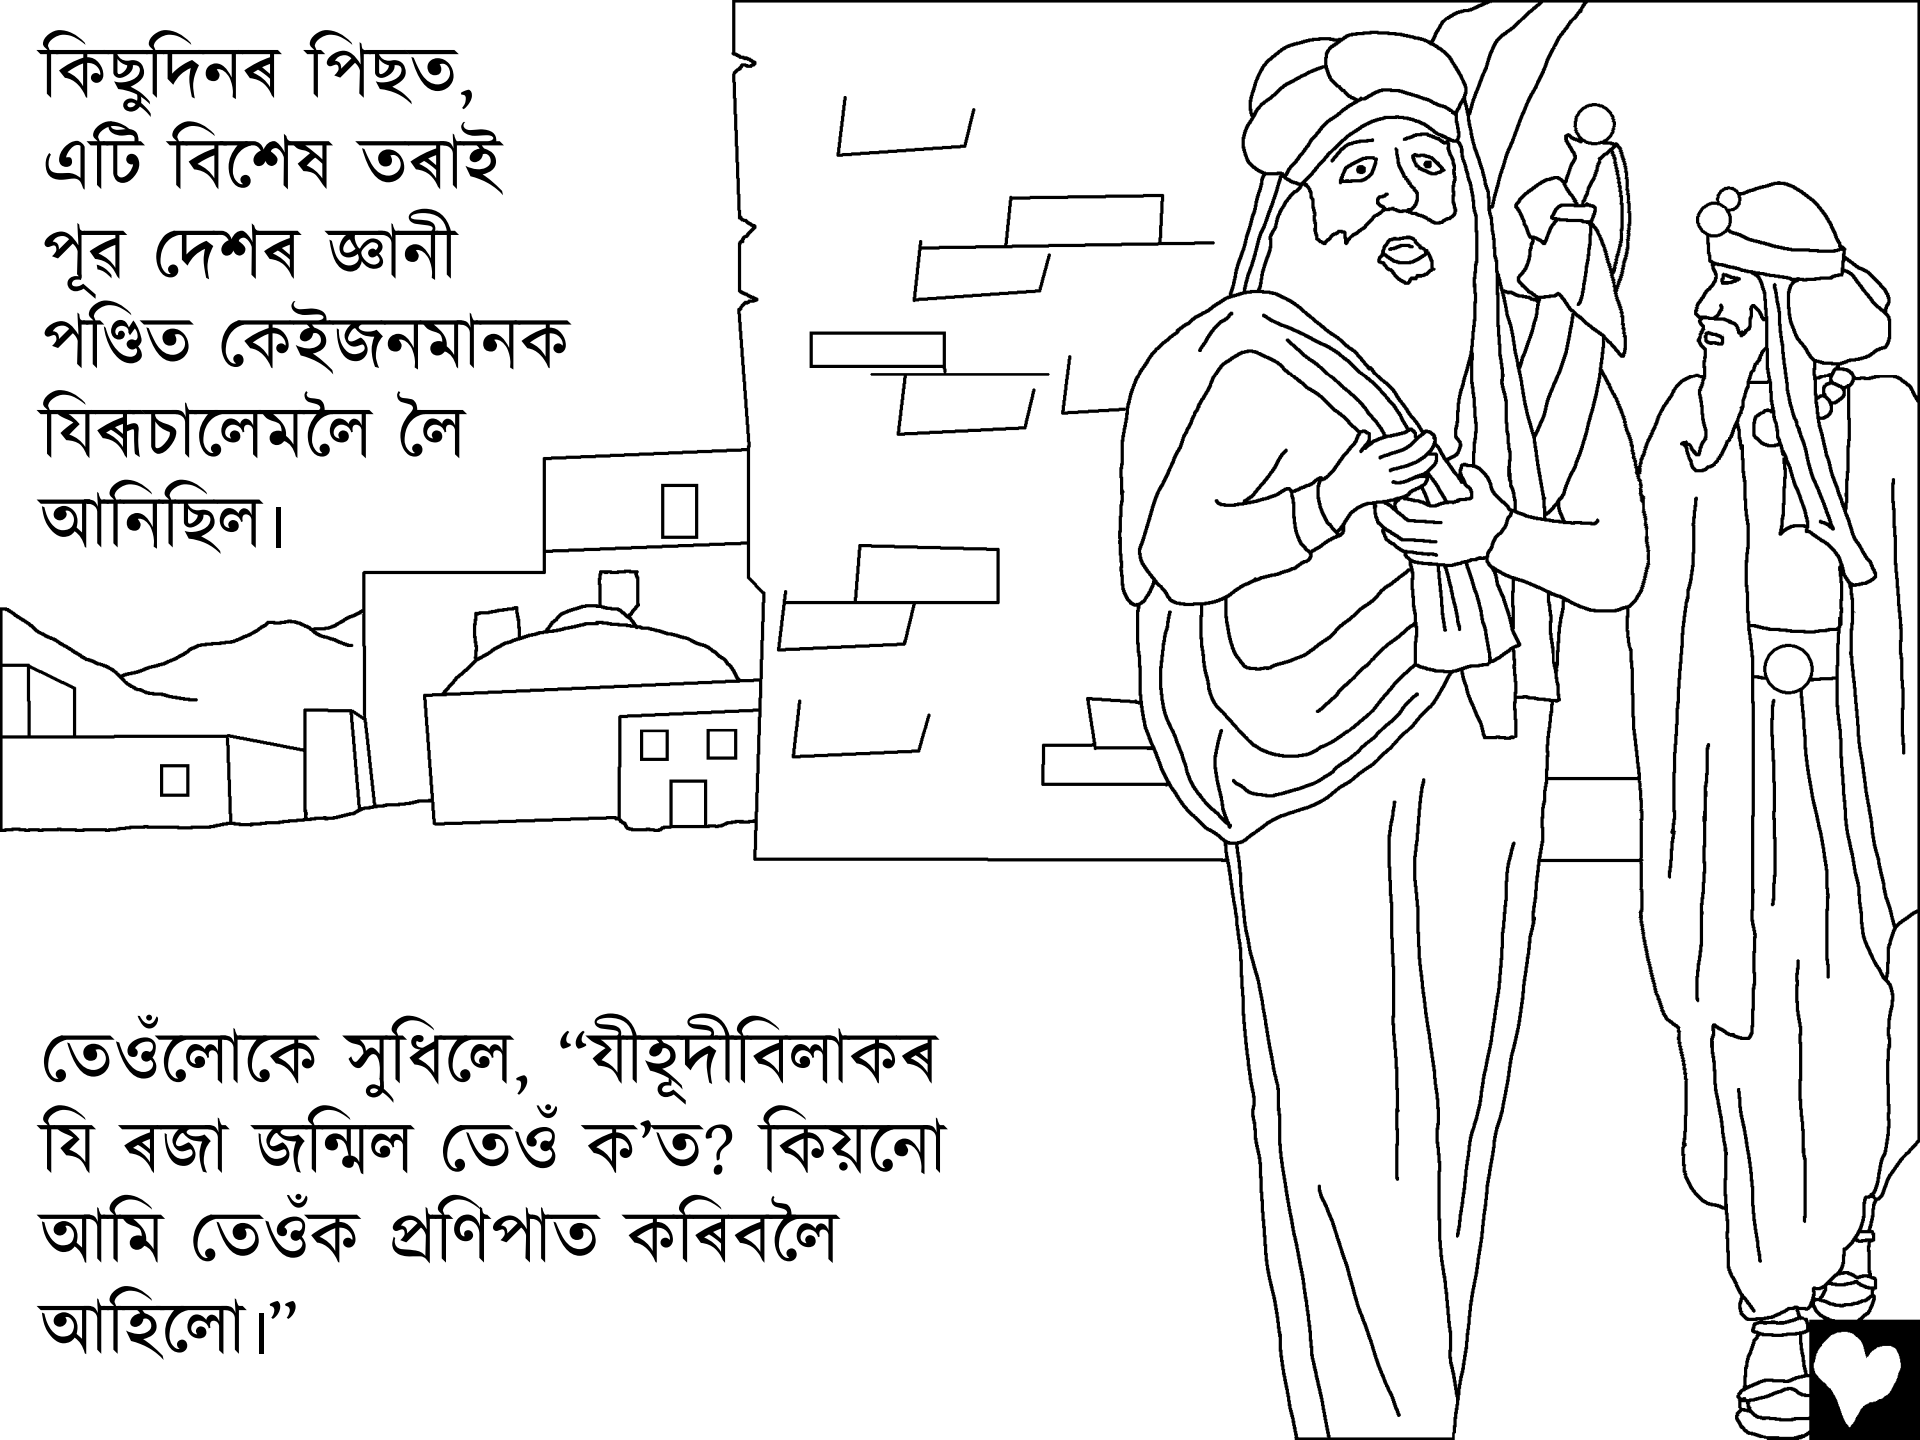 কিছুদিনৰ পিছত,
এটি বিশেষ তৰাই
পূৱ দেশৰ জ্ঞানী
পণ্ডিত কেইজনমানক
যিৰূচালেমলৈ লৈ
আনিছিল।
তেওঁলোকে সুধিলে, “যীহূদীবিলাকৰ
যি ৰজা জন্মিল তেওঁ ক’ত? কিয়নো
আমি তেওঁক প্ৰণিপাত কৰিবলৈ
আহিলো।”